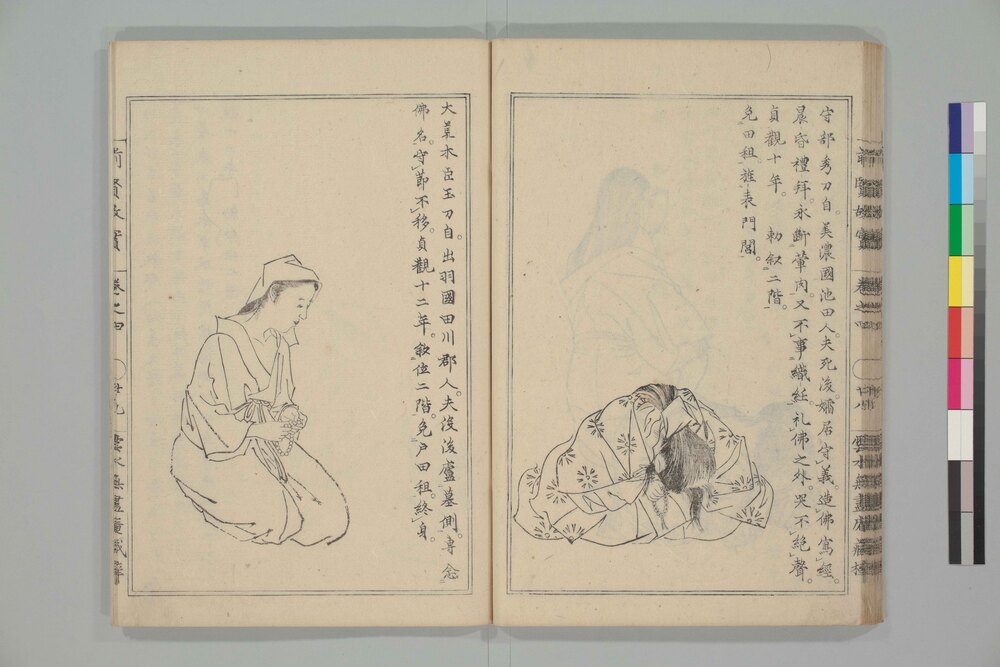 守部秀刀自。美濃國池田人。夫死後。孀居守義。造佛寫經。
晨昏禮拜。永斷葷肉。又不事織絍。礼佛之外。哭不絕聲。
貞觀十年。勅叙二階。
免田租。旌表門閭。
大荒木臣玉刀自。出羽國田川郡人。夫没後。廬墓側。專念
佛名。守節不移。貞觀十二年。叙位二階。免戸田租。終身。
前賢故實 卷之四